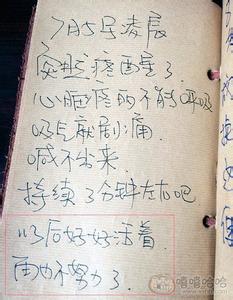 7月5号凌晨
疼醒了
心脏疼的不能呼吸
吸气就剧痛.
喊不出来.
持续3分钟左右吧
以后好好活着.
再也不努力了.
嘻嘻哈哈